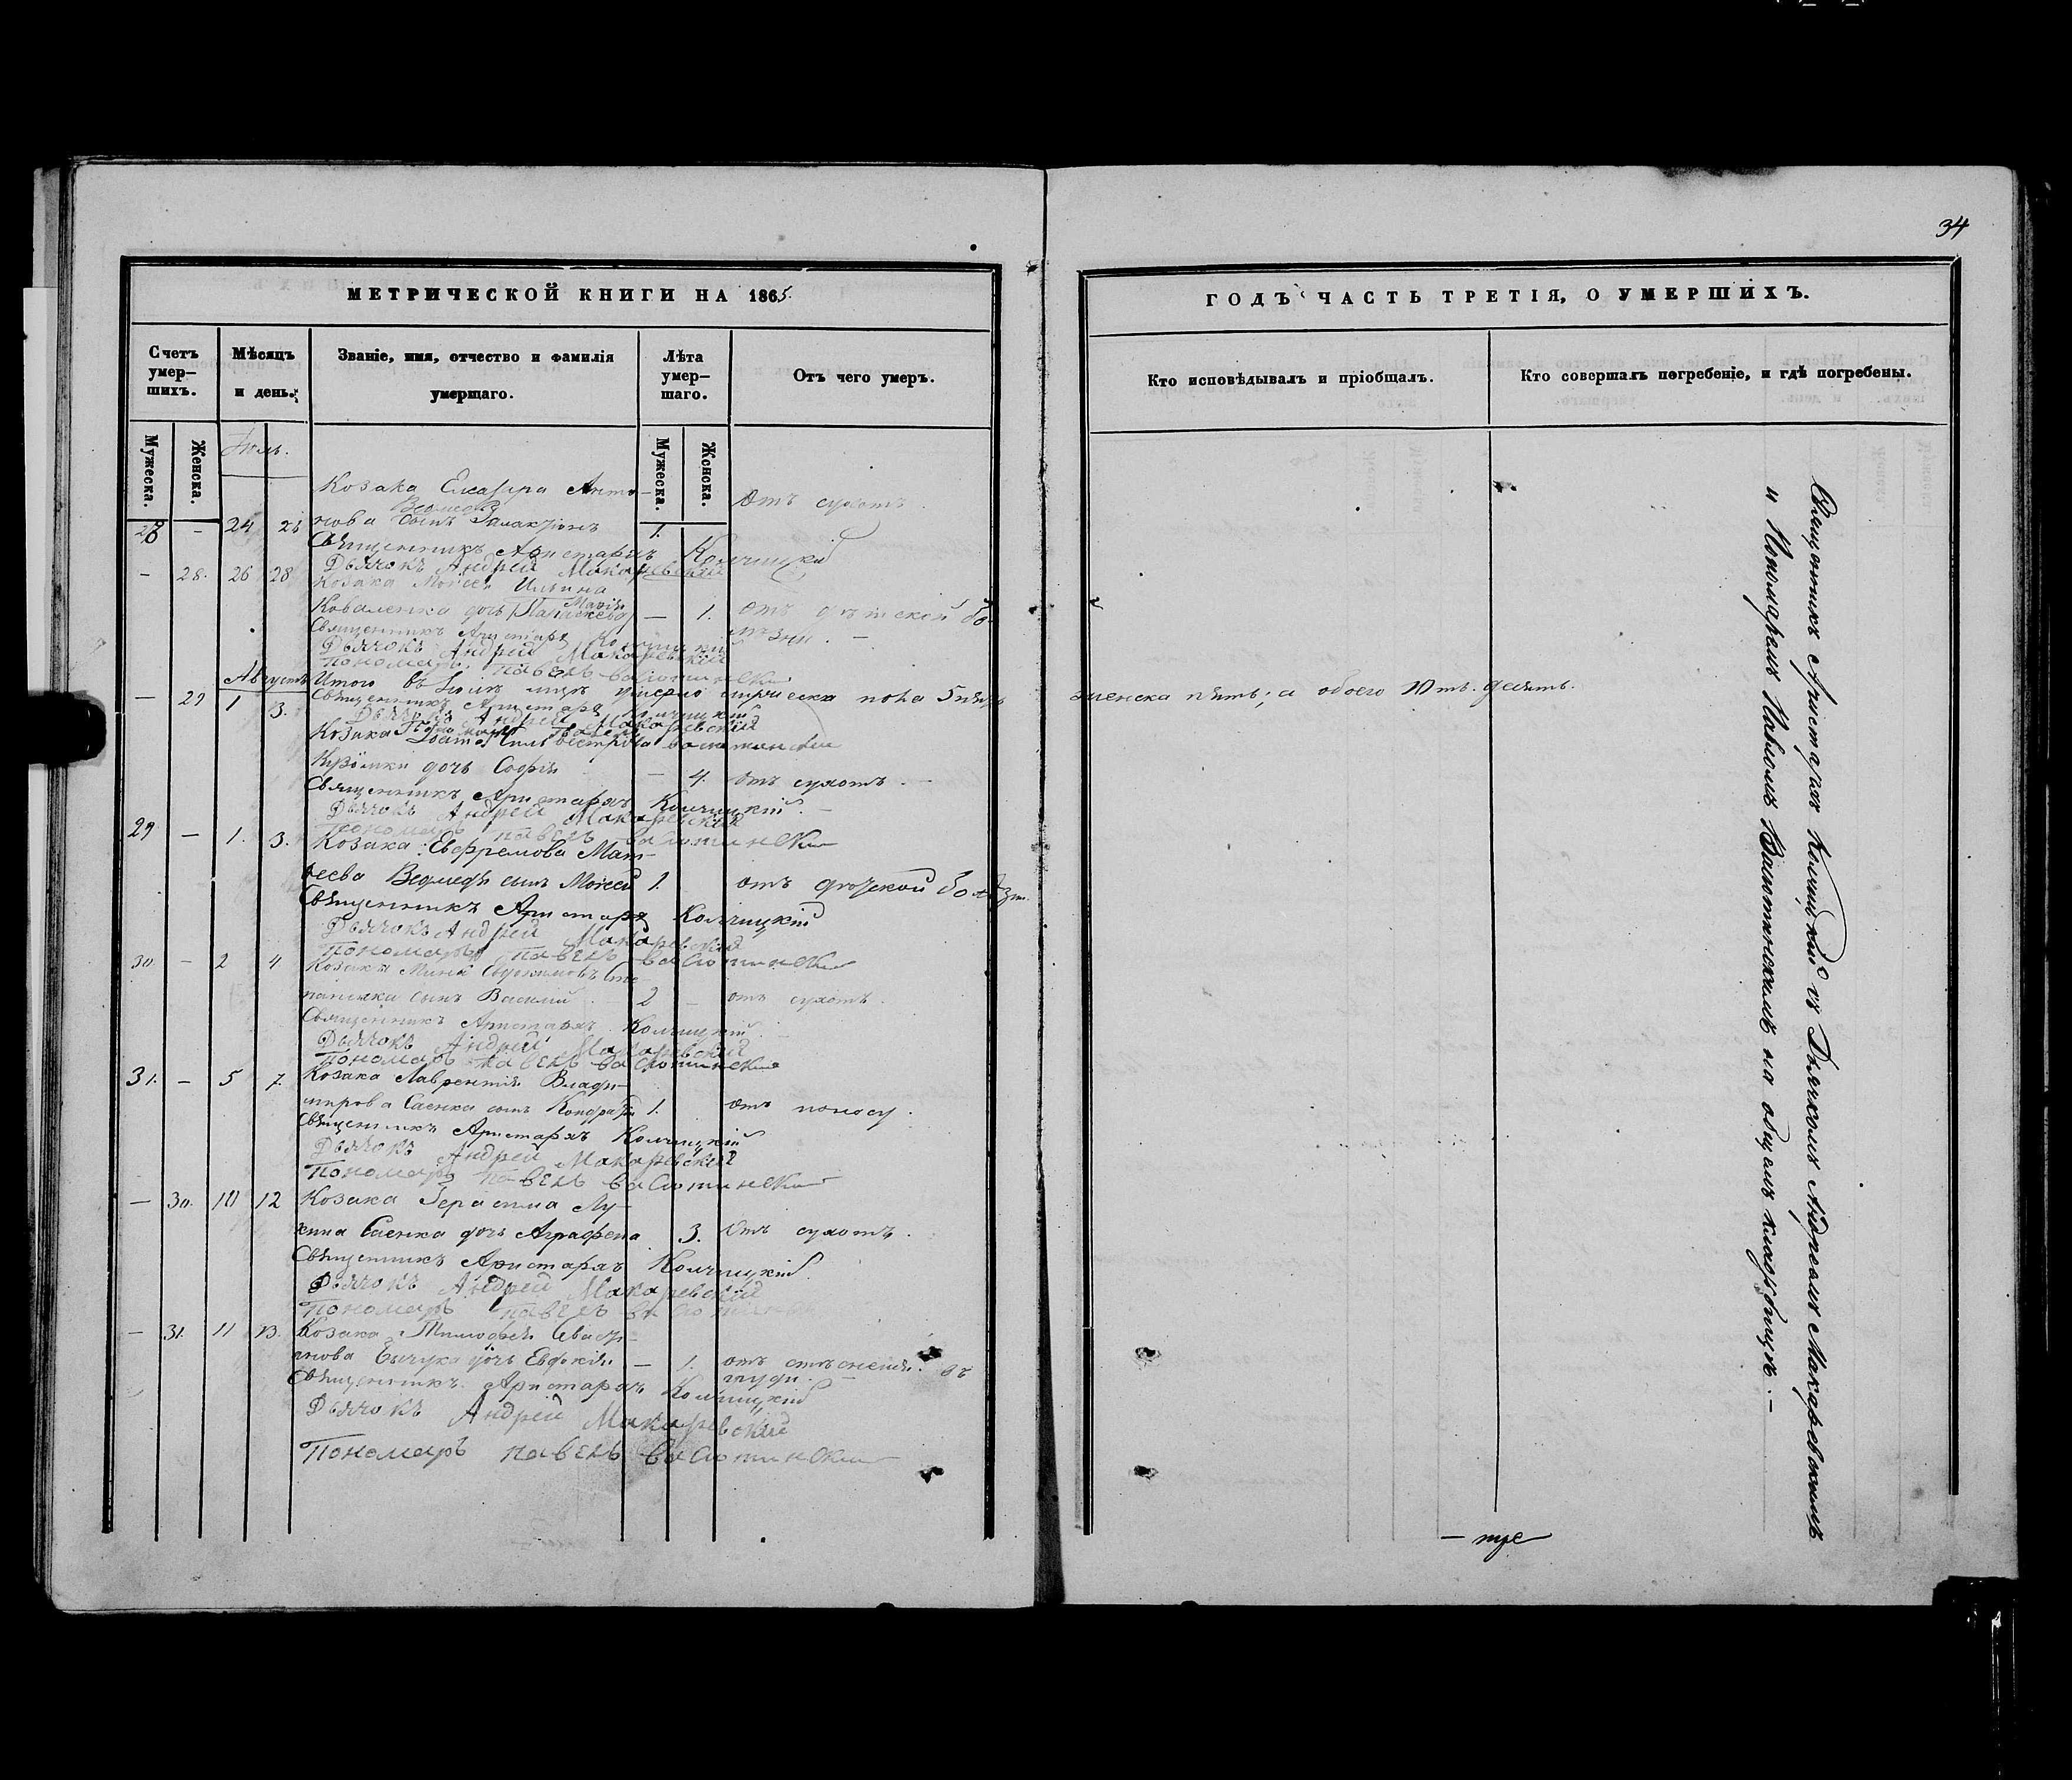 34
МЕТРИЧЕСКОЙ КНИГИ НА 1865.
Счетъ умер–шихъ.
Мѣсяцъ и день.
Званіе, имя, отчество и фамилія умершаго.
Лѣта умер–шаго.
Отъ чего умеръ.
Мужеска.
Женска.
Мужеска.
Женска.
Козака Елеазара Анто–
Ведмедя
28 – 24 нова сынъ 1. Отъ сухотъ.
Священникъ Аристархъ Колчицкій
Дьячокъ Андрей Макаревскій
– 28. 26 28 Козака Моисея Ильина
Коваленка дочь Марія – 1. отъ дѣтской бо–
лѣзни. –
Священникъ Аристархъ Колчицкій
Дьячокъ Андрей Макаревскій
Пономарь Павелъ Васютинскій
Августъ
Итого въ Іюлѣ умерло мужеска пола 5 пять
– 29 1 3.
Священникъ Аристархъ Колчицкій
Дьячокъ Андрей Макаревскій
Пономарь Павелъ Васютинскій
Козака Сильвестрова
дочь Софія – 4. отъ сухотъ. –
Священникъ Аристархъ Колчицкій. –
Дьячокъ Андрей Макаревскій
Пономарь Павелъ Васютинскій
29 – 1. 3. Козака Евфремова Мат–
веева Ведмедя сынъ Моисей 1. отъ болѣзни
Священникъ Аристархъ Колчицкій
Дьячокъ Андрей Макаревскій
Пономарь Павелъ Васютинскій
30 – 2 4 Козака Мины Евдокимова
сынъ Василий 2 – отъ сухотъ.
Священникъ Аристархъ Колчицкій
Дьячокъ Андрей Макаревскій
Пономарь Павелъ Васютинскій
31. – 5 7. Козака Лаврентія Влади–
мирова Саенка сынъ Кондратій 1. отъ поносу.
Священникъ Аристархъ Колчицкій
Дьячокъ Андрей Макаревскій
Пономарь Павелъ Васютинскій
– 30. 10 12 Козака Герасима Лу–
кина Саенка дочь Аграфена 3. Отъ сухотъ.
Священникъ Аристархъ Колчицкій.
Дьячокъ Андрей Макаревскій
Пономарь Павелъ
– 31. 11 13. Козака Тимофея Севасті–
янова дочь Евдокія – 1. отъ стѣсненія въ
груди. –
Священникъ Аристархъ Колчицкій
Дьячокъ Андрей Макаревскій
Пономарь Павелъ Васютинскій
ГОДЪ ЧАСТЬ ТРЕТІЯ, О УМЕРШИХЪ.
Кто исповѣдывалъ и пріобщалъ.
Кто совершалъ погребеніе, и гдѣ погребены.
женска пять; а обоего 10ть. десять.
Священникъ Аристархъ Колчицкій съ Дьячкомъ Андреемъ Макаревскимъ
и Пономаремъ Павломъ Васютинскимъ на общемъ кладбищѣ. –